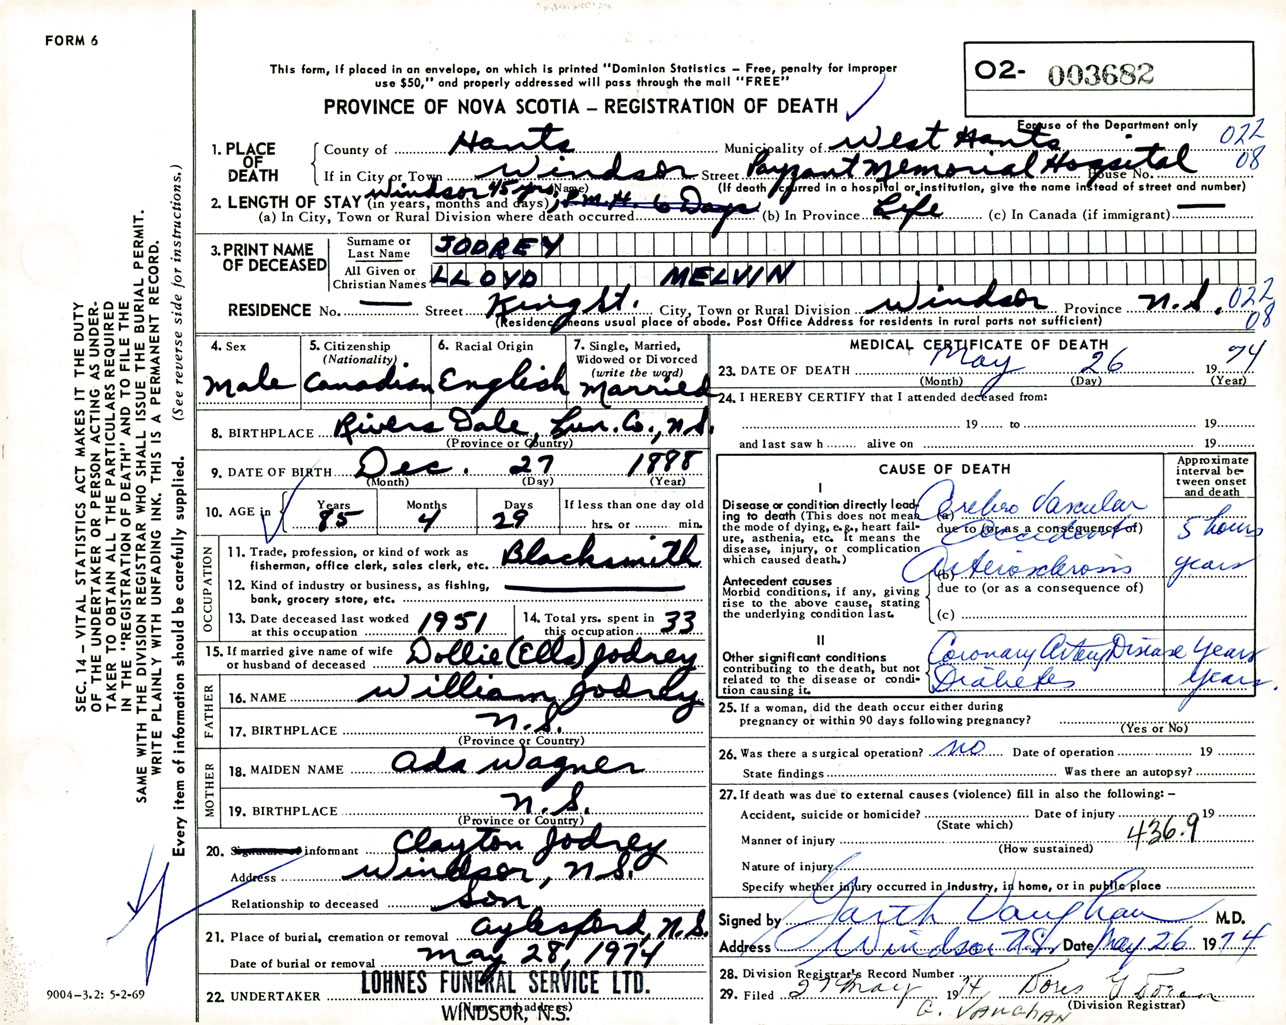 FORM 6
This form, if placed in an envelope, on which is printed "Dominion Statistics – Free, penalty for improper
use $50," and properly addressed will pass through the mail "FREE"
PROVINCE OF NOVA SCOTIA – REGISTRATION OF DEATH
O2- 003682
For use of the Department only
022
08
1. PLACE OF DEATH
County of Hants Municipality of West Hants
If in City or Town Windsor Street Payzant Memorial Hospital House No.
(Name) (If death occurred in a hospital or institution, give the name instead of street and number)
2. LENGTH OF STAY (in years, months and days) Windsor 45 yrs. P.M.H. 6 Days
(a) In City, Town or Rural Division where death occurred (b) In Province Life (c) In Canada (if immigrant) —
3. PRINT NAME OF DECEASED
Surname or Last Name JODREY
All Given or Christian Names LLOYD MELVIN
RESIDENCE No. — Street King St. City, Town or Rural Division Windsor Province N.S.
022
08
(Residence means usual place of abode. Post Office Address for residents in rural parts not sufficient)
4. Sex Male
5. Citizenship (Nationality) Canadian
6. Racial Origin English
7. Single, Married, Widowed or Divorced (write the word) Married
8. BIRTHPLACE Rivers Dale, Lun. Co., N.S.
(Province or Country)
9. DATE OF BIRTH Dec. 27 1888
(Month) (Day) (Year)
10. AGE in Years 85 Months 4 Days 29 If less than one day old
hrs. or min.
OCCUPATION
11. Trade, profession, or kind of work as fisherman, office clerk, sales clerk, etc. Blacksmith
12. Kind of industry or business, as fishing, bank, grocery store, etc. —
13. Date deceased last worked at this occupation 1951
14. Total yrs. spent in this occupation 33
15. If married give name of wife or husband of deceased Dollie (Ella) Jodrey
FATHER
16. NAME William Jodrey
17. BIRTHPLACE N.S.
(Province or Country)
MOTHER
18. MAIDEN NAME Ada Wagner
19. BIRTHPLACE N.S.
(Province or Country)
20. Signature of informant Clayton Jodrey
Address Windsor, N.S.
Relationship to deceased Son
21. Place of burial, cremation or removal Aylesford, N.S.
Date of burial or removal May 28, 1974
22. UNDERTAKER LOHNES FUNERAL SERVICE LTD.
(Name and address)
WINDSOR, N.S.
MEDICAL CERTIFICATE OF DEATH
23. DATE OF DEATH May 26 1974
(Month) (Day) (Year)
24. I HEREBY CERTIFY that I attended deceased from:
19 to 19
and last saw h alive on 19
CAUSE OF DEATH
Approximate interval between onset and death
I
Disease or condition directly leading to death (This does not mean the mode of dying, e.g., heart failure, asthenia, etc. It means the disease, injury, or complication which caused death.)
(a) Cerebro Vascular Accident 5 hours
due to (or as a consequence of)
Antecedent causes
Morbid conditions, if any, giving rise to the above cause, stating the underlying condition last.
(b) Arteriosclerosis years
due to (or as a consequence of)
(c)
II
Other significant conditions contributing to the death, but not related to the disease or condition causing it.
Coronary Artery Disease Years
Diabetes Years.
25. If a woman, did the death occur either during pregnancy or within 90 days following pregnancy?
(Yes or No)
26. Was there a surgical operation? no Date of operation 19
State findings Was there an autopsy?
27. If death was due to external causes (violence) fill in also the following: –
Accident, suicide or homicide? Date of injury 19
(State which)
436.9
Manner of injury
(How sustained)
Nature of injury
Specify whether injury occurred in Industry, in home, or in public place
Signed by Garth Vaughan M.D.
Address Windsor N.S. Date May 26 1974
28. Division Registrar's Record Number
29. Filed 27 May 1974 Doris G
(Division Registrar)
G. VAUGHAN
SEC. 14 – VITAL STATISTICS ACT MAKES IT THE DUTY
OF THE UNDERTAKER OR PERSON ACTING AS UNDER-
TAKER TO OBTAIN ALL THE PARTICULARS REQUIRED
IN THE "REGISTRATION OF DEATH" AND TO FILE THE
SAME WITH THE DIVISION REGISTRAR WHO SHALL ISSUE THE BURIAL PERMIT.
WRITE PLAINLY WITH UNFADING INK. THIS IS A PERMANENT RECORD.
Every item of information should be carefully supplied. (See reverse side for instructions.)
9004-3.2: 5-2-69